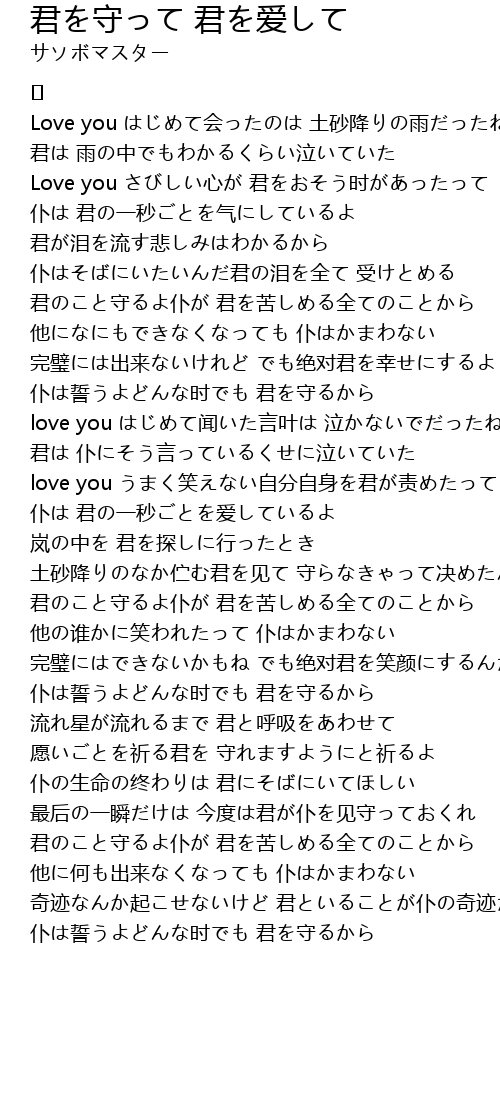 君を守って 君を爱して
サソボマスター
[]
Love you はじめて会ったのは 土砂降りの雨だったね
君は 雨の中でもわかるくらい泣いていた
Love you さびしい心が 君をおそう时があったって
仆は 君の一秒ごとを气にしているよ
君が泪を流す悲しみはわかるから
仆はそばにいたいんだ君の泪を全て 受けとめる
君のこと守るよ仆が 君を苦しめる全てのことから
他になにもできなくなっても 仆はかまわない
完璧には出来ないけれど でも绝对君を幸せにするよ
仆は誓うよどんな时でも 君を守るから
love you はじめて闻いた言叶は 泣かないでだったね
君は 仆にそう言っているくせに泣いていた
love you うまく笑えない自分自身を君が责めたって
仆は 君の一秒ごとを爱しているよ
岚の中を 君を探しに行ったとき
土砂降りのなか伫む君を见て 守らなきゃって决めた
君のこと守るよ仆が 君を苦しめる全てのことから
他の谁かに笑われたって 仆はかまわない
完璧にはできないかもね でも绝对君を笑颜にするん
仆は誓うよどんな时でも 君を守るから
流れ星が流れるまで 君と呼吸をあわせて
愿いごとを祈る君を 守れますようにと祈るよ
仆の生命の终わりは 君にそばにいてほしい
最后の一瞬だけは 今度は君が仆を见守っておくれ
君のこと守るよ仆が 君を苦しめる全てのことから
他に何も出来なくなっても 仆はかまわない
奇迹なんか起こせないけど 君といることが仆の奇迹
仆は誓うよどんな时でも 君を守るから